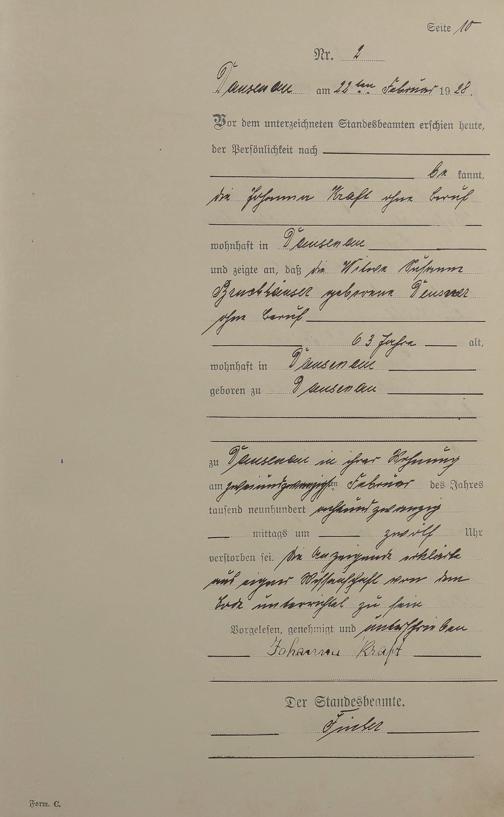 Seite 10
Nr. 2
Dausenau am 22ten Februar 1928.
Vor dem unterzeichneten Standesbeamten erschien heute,
der Persönlichkeit nach
be kannt,
die Johanna Kraft ohne Beruf
wohnhaft in Dausenau
und zeigte an, daß die Witwe Susanne
geborene
ohne Beruf
63 Jahre alt,
wohnhaft in Dausenau
geboren zu Dausenau
zu Dausenau in ihrer Wohnung
am zweiundzwanzigsten Februar des Jahres
tausend neunhundert achtundzwanzig
mittags um zwölf Uhr
verstorben sei. Die Anzeigende erklärte
aus eigner Wissenschaft von dem
Tode unterrichtet zu sein
Vorgelesen, genehmigt und unterschrieben
Johanna Kraft
Der Standesbeamte.
Form. C.